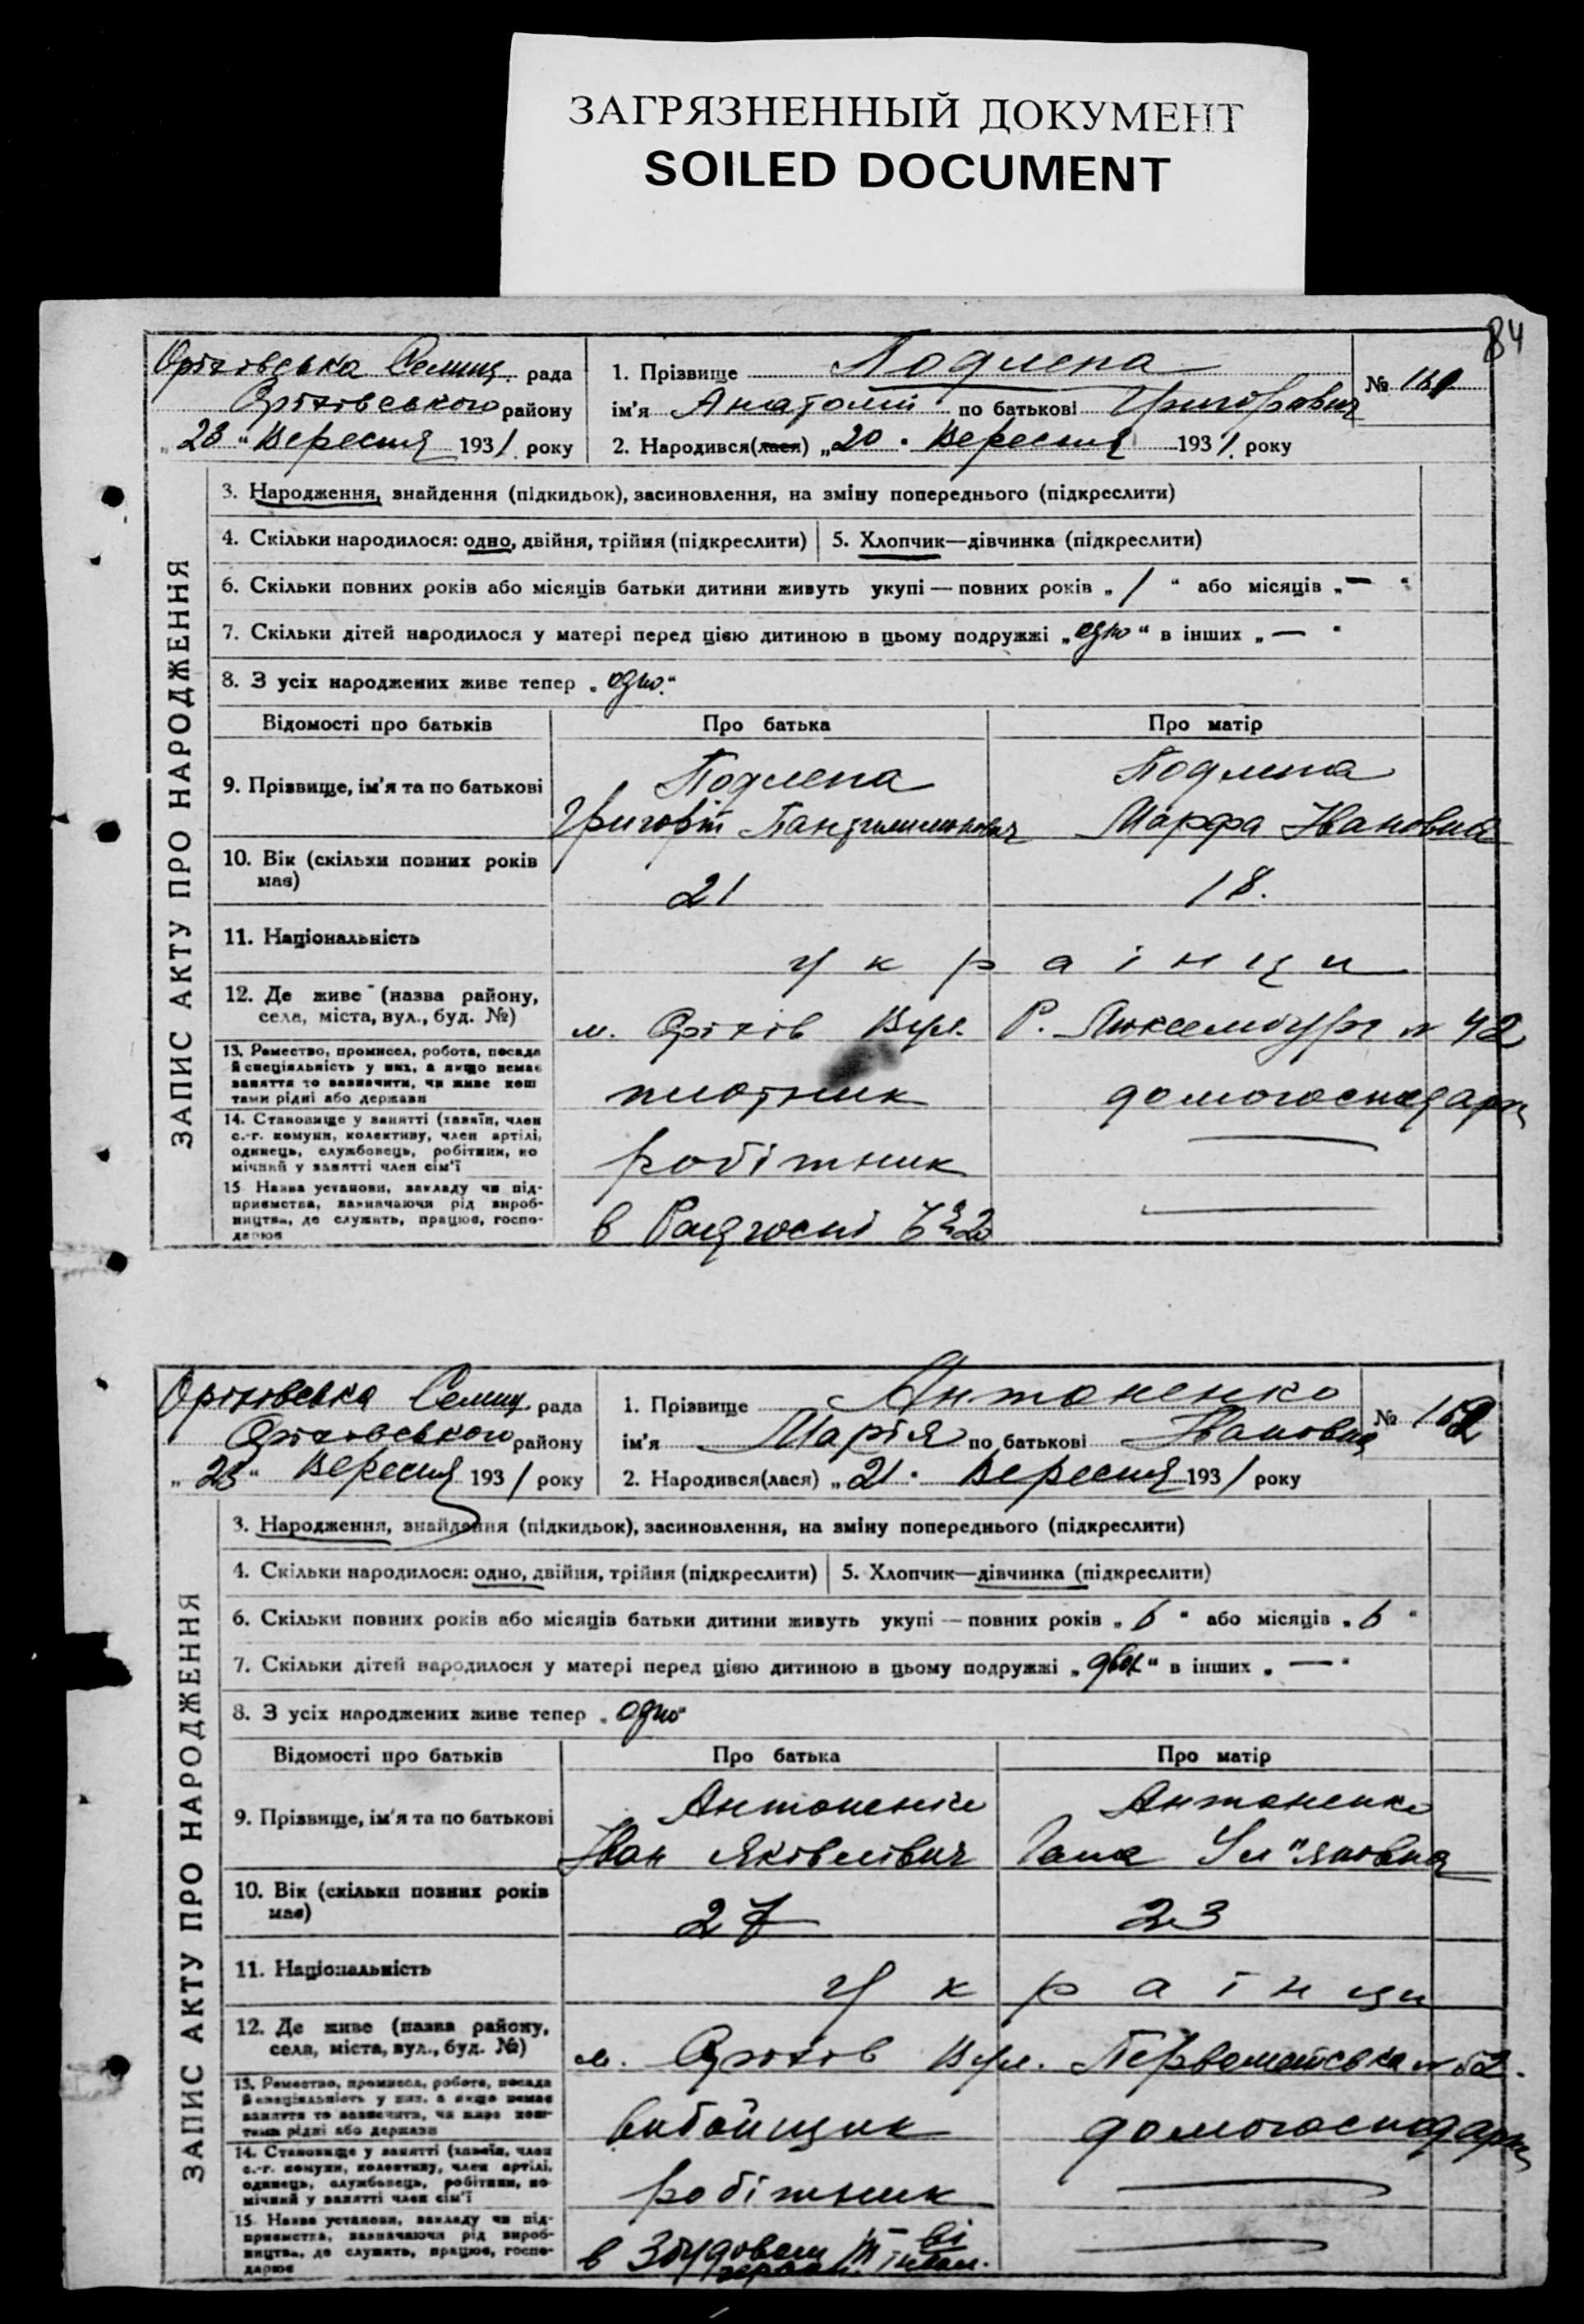 ЗАГРЯЗНЕННЫЙ ДОКУМЕНТ
SOILED DOCUMENT
84
ЗАПИС АКТУ ПРО НАРОДЖЕННЯ
Оріхівська Селищ. рада
Оріхівського району
„28“ Вересня 1931 року
1. Прізвище Подлепа
№
ім'я Анатолій по батькові Григорович
2. Народився(лася) „20“ Вересня 1931 року
3. Народження, знайдення (підкидьок), засиновлення, на зміну попереднього (підкреслити)
4. Скільки народилося: одно, двійня, трійня (підкреслити) 5. Хлопчик—дівчинка (підкреслити)
6. Скільки повних років або місяців батьки дитини живуть укупі — повних років „1“ або місяців „—“
7. Скільки дітей народилося у матері перед цією дитиною в цьому подружжі „одно“ в інших „—“
8. З усіх народжених живе тепер „одно“
Відомості про батьків Про батька Про матір
9. Прізвище, ім'я та по батькові
Подлепа Подлепа
Григорій Пантилимонович Марфа Івановна
10. Вік (скільки повних років має) 21 18.
11. Національність українци
12. Де живе (назва району, села, міста, вул., буд. №)
м. Оріхів Вул. Р. Люксембург № 42
13. Ремество, промисел, робота, посада й спеціяльність у них, а якщо немає заняття то зазначити, чи живе коштами рідні або держави
плотник
14. Становище у занятті (хазяїн, член с.-г. комуни, колективу, член артілі, одинець, службовець, робітник, помічний у занятті член сім'ї
робітник
15. Назва установи, закладу чи підприємства, зазначаючи рід виробництва, де служить, працює, господарює
в
ЗАПИС АКТУ ПРО НАРОДЖЕННЯ
Оріхівська Селищ. рада
Оріхівського району
„28“ Вересня 1931 року
1. Прізвище Антоненко
№ 162
ім'я Марія по батькові Івановна
2. Народився(лася) „21“ Вересня 1931 року
3. Народження, знайдення (підкидьок), засиновлення, на зміну попереднього (підкреслити)
4. Скільки народилося: одно, двійня, трійня (підкреслити) 5. Хлопчик—дівчинка (підкреслити)
6. Скільки повних років або місяців батьки дитини живуть укупі — повних років „6“ або місяців „6“
7. Скільки дітей народилося у матері перед цією дитиною в цьому подружжі „двох“ в інших „—“
8. З усіх народжених живе тепер „одно“
Відомості про батьків Про батька Про матір
9. Прізвище, ім'я та по батькові
Антоненко Антоненко
Іван Яківлівич Гана Ул"яновна
10. Вік (скільки повних років має) 27 23
11. Національність українци
12. Де живе (назва району, села, міста, вул., буд. №)
м. Оріхів Вул. Первомаїська № 52.
13. Ремество, промисел, робота, посада й спеціяльність у них, а якщо немає заняття то зазначити, чи живе коштами рідні або держави
вибойщик
14. Становище у занятті (хазяїн, член с.-г. комуни, колективу, член артілі, одинець, службовець, робітник, помічний у занятті член сім'ї
робітник
15. Назва установи, закладу чи підприємства, зазначаючи рід виробництва, де служить, працює, господарює
в